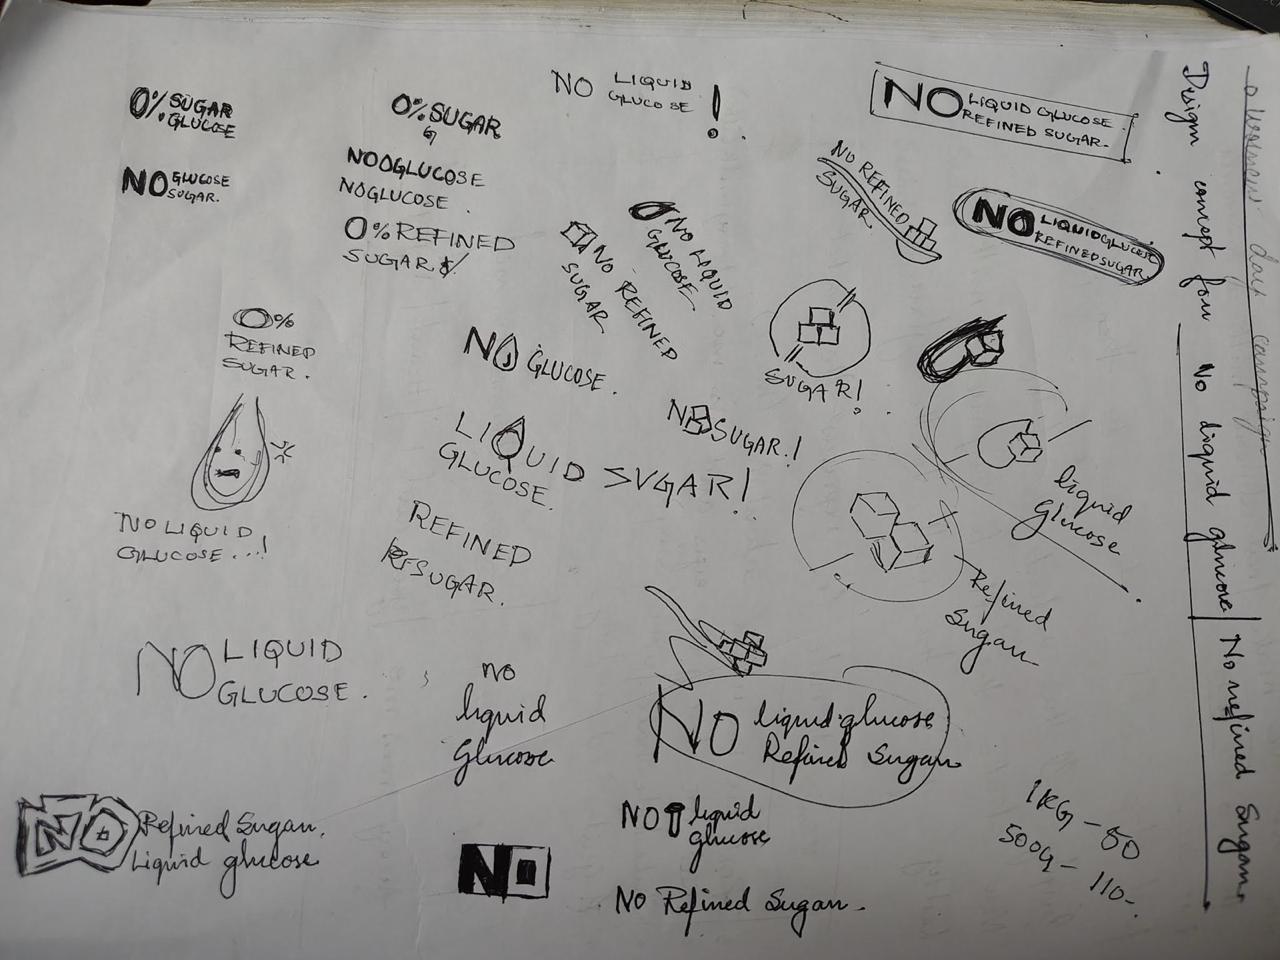 0% SUGAR
GLUCOSE
NO GLUCOSE
SUGAR.
0% SUGAR
G
NOOGLUCOSE
NOGLUCOSE.
0% REFINED
SUGAR
NO LIQUID
GLUCOSE !
NO LIQUID GLUCOSE
REFINED SUGAR.
NO REFINED
SUGAR
NO LIQUID GLUCOSE
REFINED SUGAR.
NO LIQUID
GLUCOSE
NO REFINED
SUGAR
0%
REFINED
SUGAR.
NO GLUCOSE.
SUGAR!
NO SUGAR.!
LIQUID
GLUCOSE.
SUGAR!
liquid
Glucose
NO LIQUID
GLUCOSE...!
REFINED
SUGAR.
Refined
Sugar
NO LIQUID
GLUCOSE.
no
liquid
Glucose
NO liquid glucose
Refined Sugar
NO Refined Sugar.
Liquid glucose
NO
NO liquid
glucose
No Refined Sugar.
1KG - 50
500G - 110-
campaign
Design concept for No liquid glucose/ No refined Sugar